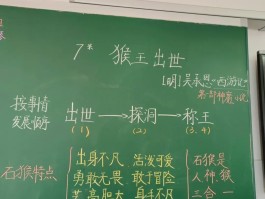 7* 猴王出世
[明]吴承恩《西游记》
按事情
发展顺序
出世→探洞→称王
(1) (2) (3、4)
石猴特点
出身不凡 活泼可爱
勇敢无畏 敢于冒险
石猴是
人、神、猴
三合一